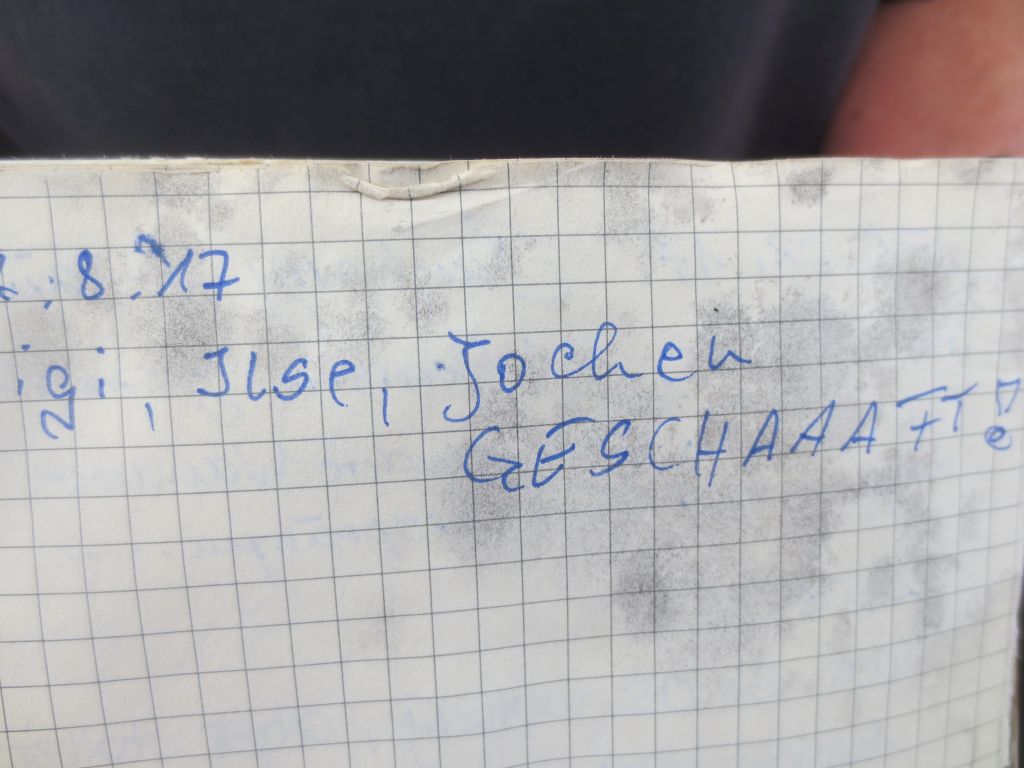 .8.17
igi, Ilse, Jochen
GESCHAAAFFT!